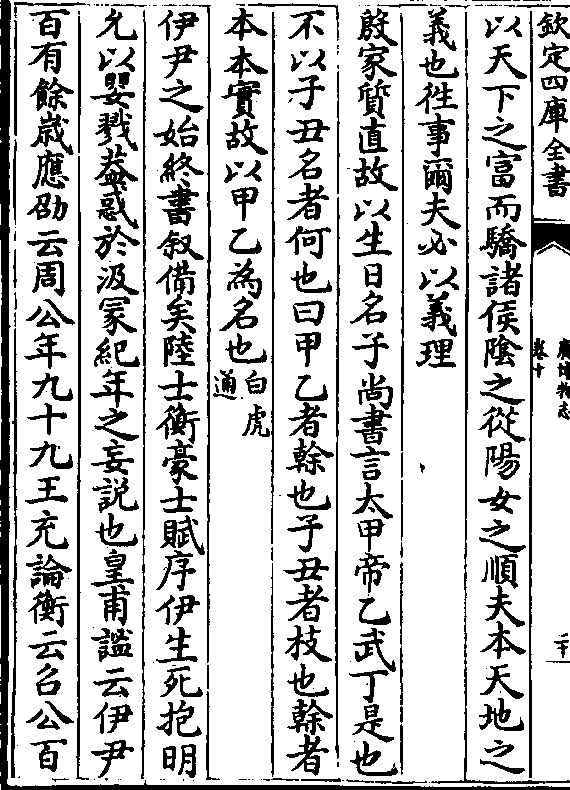 欽定四庫全書
廣博物志
卷十
二十
以天下之富而驕諸侯陰之從陽女之順夫本天地之
義也徃事爾夫必以義理
殷家質直故以生日名子尚書言太甲帝乙武丁是也
不以子丑名者何也曰甲乙者幹也子丑者枝也幹者
本本實故以甲乙為名也白虎通
伊尹之始終書叙備矣陸士衡豪士賦序伊生死抱明
允以嬰戮葢惑於汲冡紀年之妄説也皇甫謐云伊尹
百有餘歳應劭云周公年九十九王充論衡云召公百